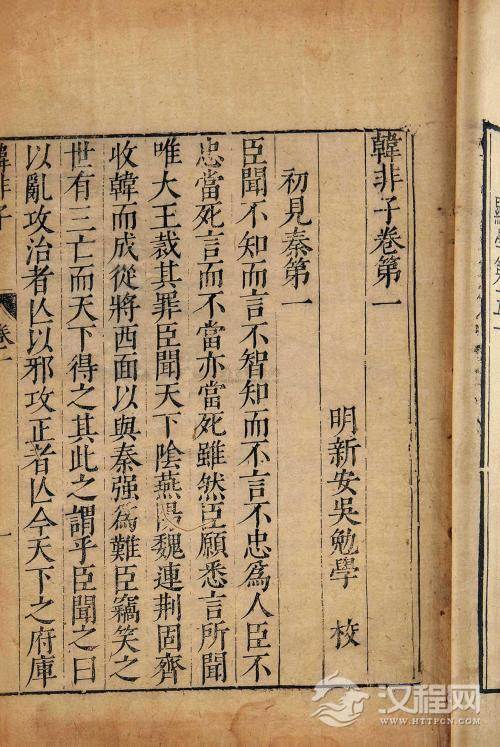 韓非子卷第一
明新安吳勉學 校
初見秦第一
臣聞不知而言不智知而不言不忠爲人臣不
忠當死言而不當亦當死雖然臣願悉言所聞
唯大王裁其罪臣聞天下陰燕陽魏連荆固齊
收韓而成從將西面以與秦强爲難臣竊笑之
世有三亡而天下得之其此之謂乎臣聞之曰
以亂攻治者亾以邪攻正者亾今天下之府庫
韓非子
卷一
一
汉程网
WWW.HTTPCN.COM